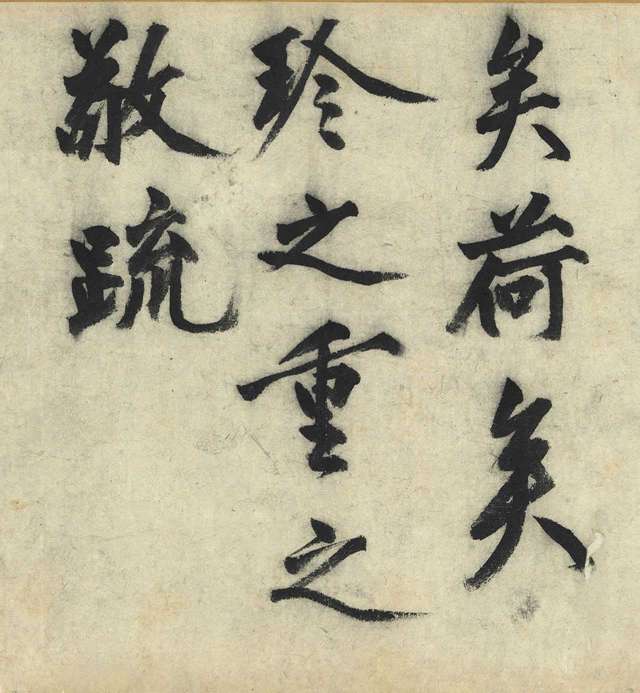 矣荷矣
珍之重之
敬疏